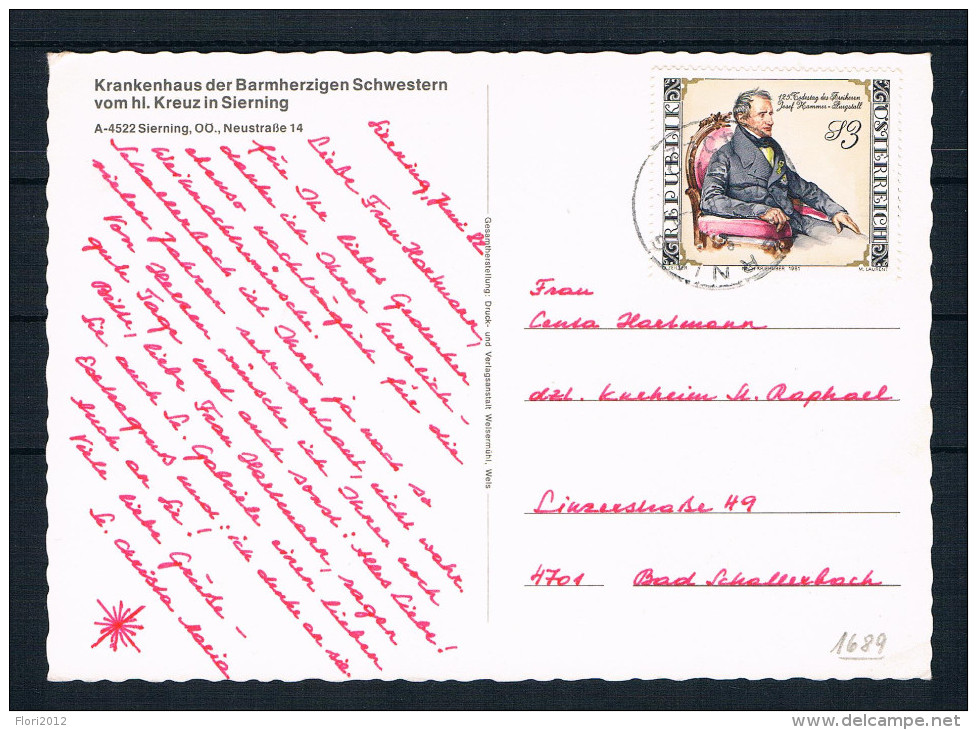 Krankenhaus der Barmherzigen Schwestern
vom hl. Kreuz in Sierning
A-4522 Sierning, OÖ., Neustraße 14
Sierning, Juni 81
Liebe Frau Hartmann,
für Ihr liebes Gedenken
danke ich Ihnen herzlich –
ebenso nachträglich für die
Weihnachtswünsche.
Schallerbach ist Ihnen ja nach so
vielen Jahren sehr vertraut, nicht wahr.
Von Herzen wünsche ich Ihnen noch
gute Tage und auch sonst: Alles Liebe!
Bitte, liebe Frau Hartmann, sagen
Sie auch Sr. Gabriele einen lieben
Extragruß und: ich denke an sie.
Auch an Sie!
Viele liebe Grüße –
Sr. Christa Maria
Gesamtherstellung: Druck- und Verlagsanstalt Welsermühl, Wels
125. Todestag des Freiherrn
Josef Hammer-Purgstall
S3
REPUBLIK
ÖSTERREICH
1981
M. LAURENT
Frau
Centa Hartmann
dzt. Kurheim St. Raphael
Linzerstraße 49
4701 Bad Schallerbach
1689
Flori2012
www.delcampe.net